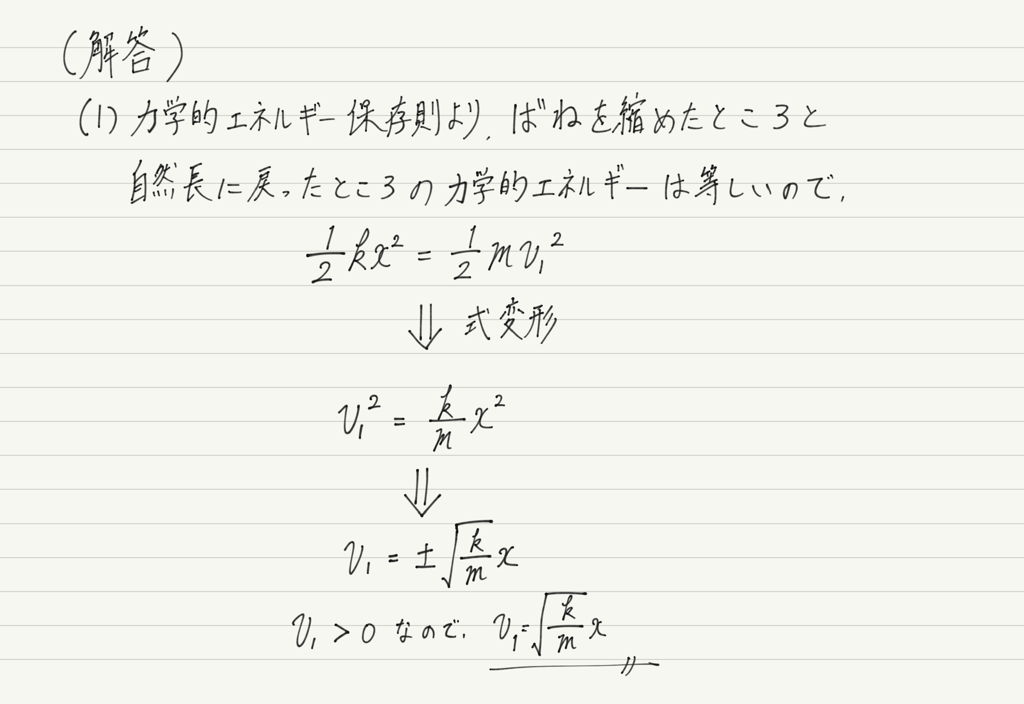 (解答)
(1) 力学的エネルギー保存則より、ばねを縮めたところと
自然長に戻ったところの力学的エネルギーは等しいので、
1/2 kx² = 1/2 mv₁²
⇓ 式変形
v₁² = k/m x²
⇓
v₁ = ±√(k/m) x
v₁ > 0 なので、 v₁ = √(k/m) x